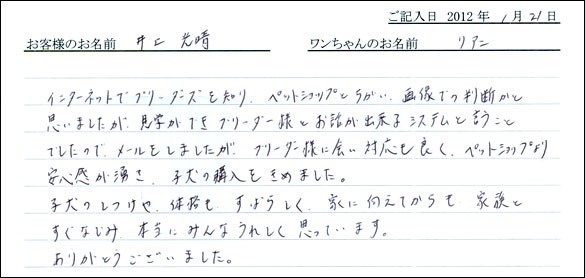 ご記入日 2012 年 1 月 21 日
お客様のお名前 井上 光晴 ワンちゃんのお名前 リアン
インターネットでブリーダーズを知り、ペットショップとちがい、画像での判断かと
思いましたが、見学ができブリーダー様とお話が出来るシステムと言うこと
でしたので、メールをしましたが、ブリーダー様に会い対応も良く、ペットショップより
安心感が湧き、子犬の購入をきめました。
子犬のしつけや、体格も、すばらしく、家に向えてからも、家族と
すぐなじみ、本当にみんなうれしく思っています。
ありがとうございました。